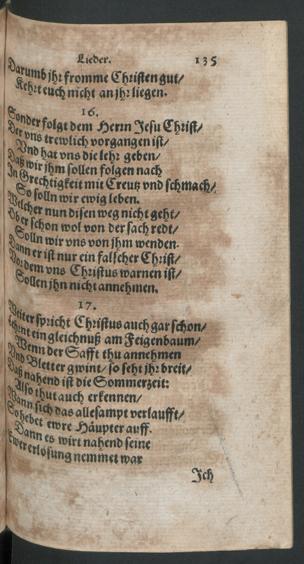 Lieder. 135
Darumb jhr fromme Christen gut/
Kehrt euch nicht an jhr liegen.
16.
Sonder folgt dem Herrn Jesu Christ/
Der vns trewlich vorgangen ist/
Vnd hat vns die lehr geben/
Daß wir jhm sollen folgen nach
In Grechtigkeit mit Creutz vnd schmach/
So solln wir ewig leben.
Welcher nun disen weg nicht geht/
Ober schon wol von der sach redt/
Solln wir vns von jhm wenden.
Dann er ist nur ein falscher Christ/
Vor dem vns Christus warnen ist/
Sollen jhn nicht annehmen.
17.
Weiter spricht Christus auch gar schon/
Lehrnt ein gleichnuß am Feigenbaum/
Wenn der Safft thu annehmen
Vnd Bletter gwint/ so seht jhr breit/
Daß nahend ist die Sommerzeit:
Also thut auch erkennen/
Wann sich das allesampt verlaufft/
So hebet ewre Häupter auff.
Dann es wirt nahend seine
Ewer erlösung nemmet war
Ich